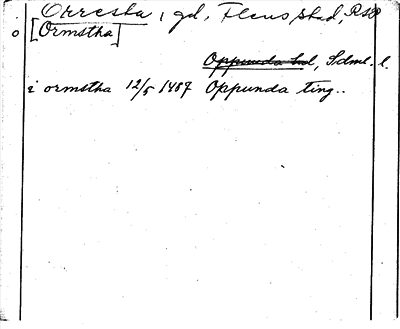 Orresta, gd, Flens stad, RSP
o [Ormstha]
Oppunda hd, Sdml. l.
i ormstha 12/5 1487 Oppunda ting..